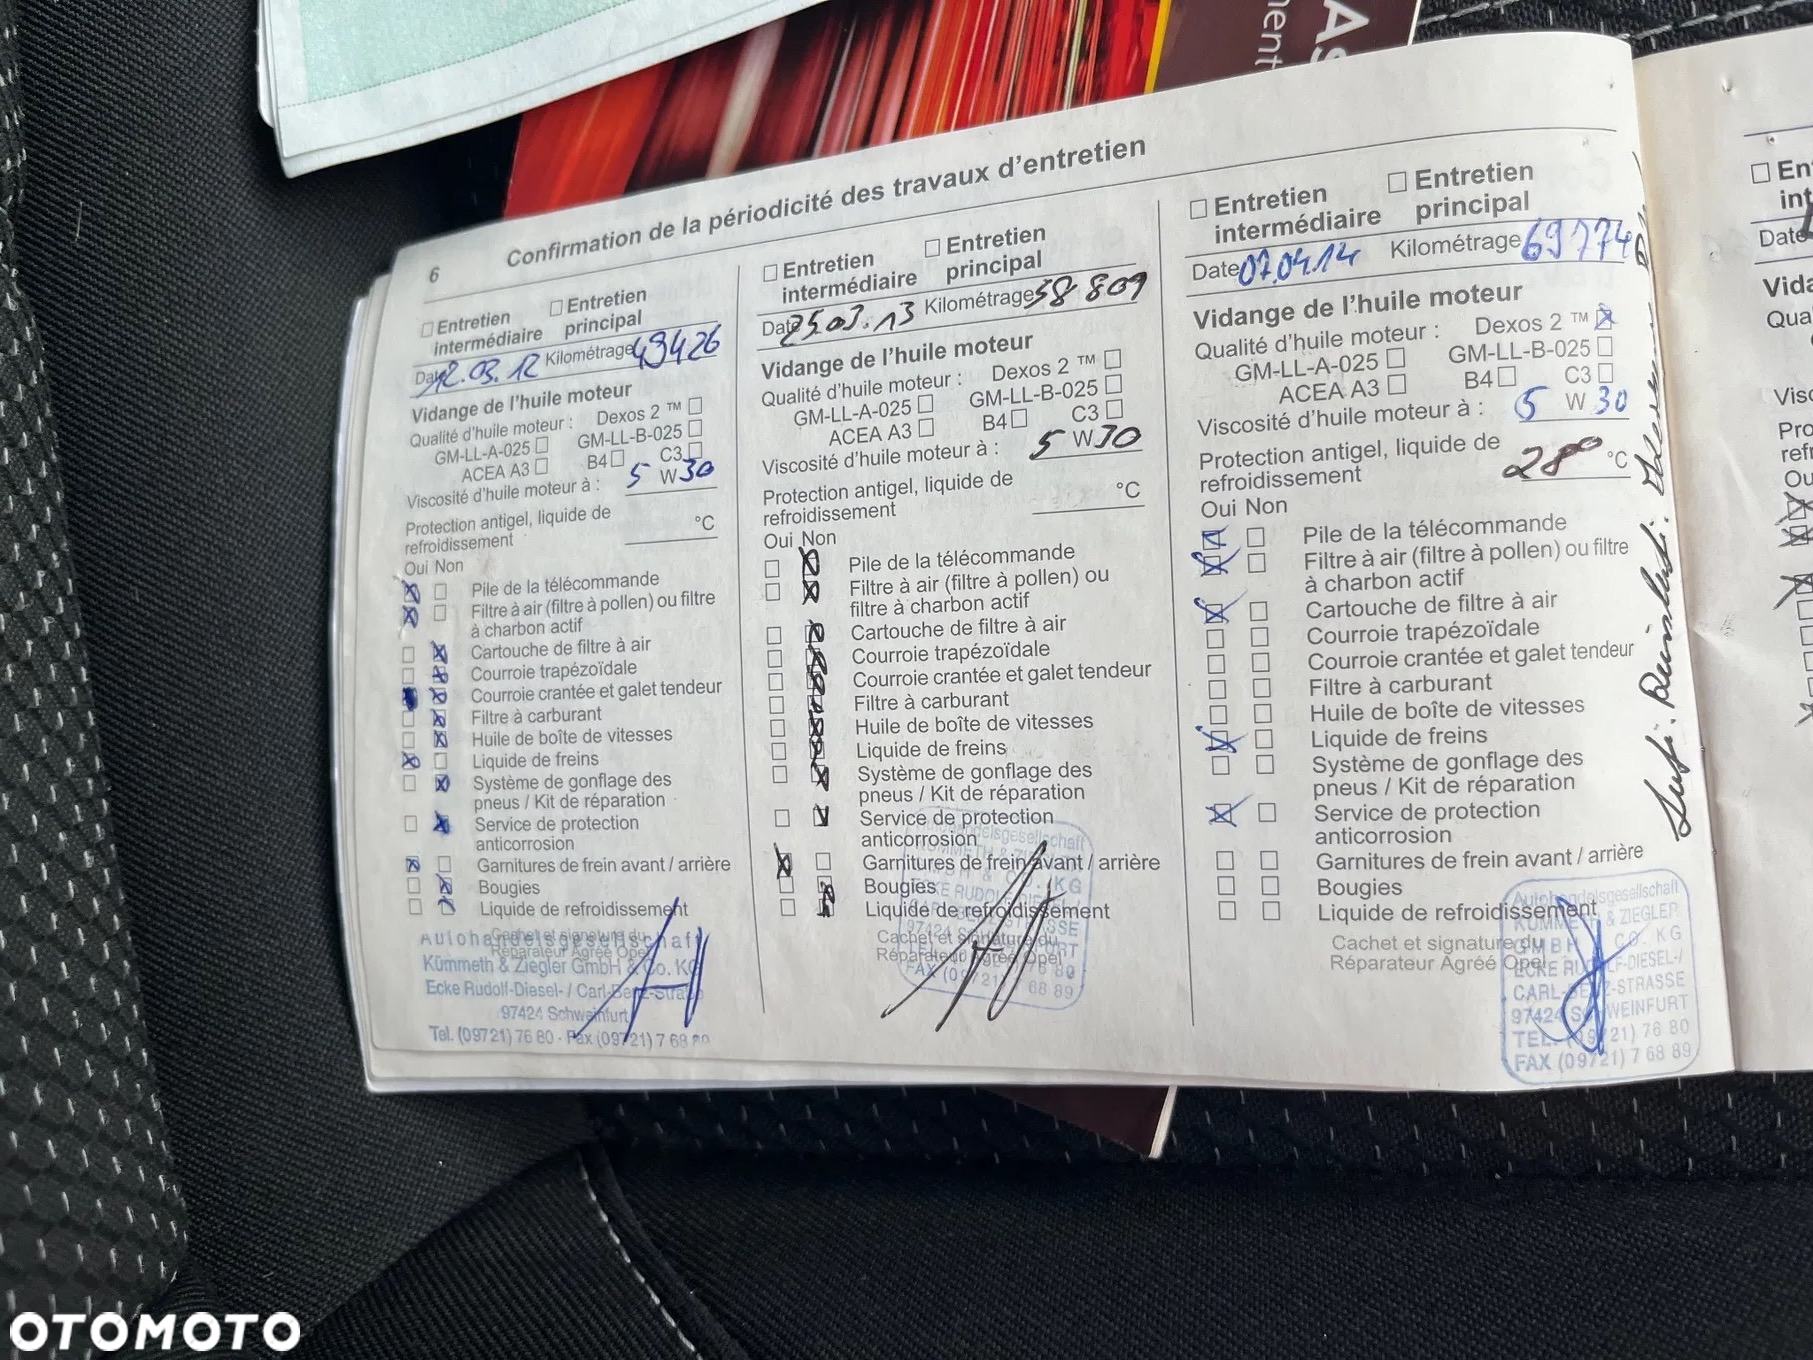 AS
nent
6 Confirmation de la périodicité des travaux d'entretien
Entretien intermédiaire
Entretien principal
Date 12.03.12 Kilométrage 49426
Vidange de l'huile moteur
Qualité d'huile moteur : Dexos 2 ™
GM-LL-A-025 GM-LL-B-025
ACEA A3 B4 C3
Viscosité d'huile moteur à : 5 W 30
Protection antigel, liquide de
refroidissement °C
Oui Non
Pile de la télécommande
Filtre à air (filtre à pollen) ou filtre
à charbon actif
Cartouche de filtre à air
Courroie trapézoïdale
Courroie crantée et galet tendeur
Filtre à carburant
Huile de boîte de vitesses
Liquide de freins
Système de gonflage des
pneus / Kit de réparation
Service de protection
anticorrosion
Garnitures de frein avant / arrière
Bougies
Liquide de refroidissement
Cachet et signature du
Réparateur Agréé Opel
Autohandelsgesellschaft
Kümmeth & Ziegler GmbH & Co. KG
Ecke Rudolf-Diesel- / Carl-Benz-Straße
97424 Schweinfurt
Tel. (09721) 76 80 - Fax (09721) 7 68 89
Entretien intermédiaire
Entretien principal
Date 25.03.13 Kilométrage 58 809
Vidange de l'huile moteur
Qualité d'huile moteur : Dexos 2 ™
GM-LL-A-025 GM-LL-B-025
ACEA A3 B4 C3
Viscosité d'huile moteur à : 5 W 30
Protection antigel, liquide de
refroidissement °C
Oui Non
Pile de la télécommande
Filtre à air (filtre à pollen) ou
filtre à charbon actif
Cartouche de filtre à air
Courroie trapézoïdale
Courroie crantée et galet tendeur
Filtre à carburant
Huile de boîte de vitesses
Liquide de freins
Système de gonflage des
pneus / Kit de réparation
Service de protection
anticorrosion
Garnitures de frein avant / arrière
Bougies
Liquide de refroidissement
Cachet et signature du
Réparateur Agréé Opel
Autohandelsgesellschaft
KÜMMETH & ZIEGLER
GMBH & CO. KG
ECKE RUDOLF-DIESEL-/
CARL-BENZ-STRASSE
97424 SCHWEINFURT
FAX (09721) 7 68 89
Entretien intermédiaire
Entretien principal
Date 07.04.14 Kilométrage 69774
Vidange de l'huile moteur
Qualité d'huile moteur : Dexos 2 ™
GM-LL-A-025 GM-LL-B-025
ACEA A3 B4 C3
Viscosité d'huile moteur à : 5 W 30
Protection antigel, liquide de
refroidissement 28° °C
Oui Non
Pile de la télécommande
Filtre à air (filtre à pollen) ou filtre
à charbon actif
Cartouche de filtre à air
Courroie trapézoïdale
Courroie crantée et galet tendeur
Filtre à carburant
Huile de boîte de vitesses
Liquide de freins
Système de gonflage des
pneus / Kit de réparation
Service de protection
anticorrosion
Garnitures de frein avant / arrière
Bougies
Liquide de refroidissement
Cachet et signature du
Réparateur Agréé Opel
Autohandelsgesellschaft
KÜMMETH & ZIEGLER
GMBH & CO. KG
ECKE RUDOLF-DIESEL-/
CARL-BENZ-STRASSE
97424 SCHWEINFURT
TEL. (09721) 76 80
FAX (09721) 7 68 89
En
int
Date
Vida
Qua
Visc
Pro
refr
Ou
OTOMOTO